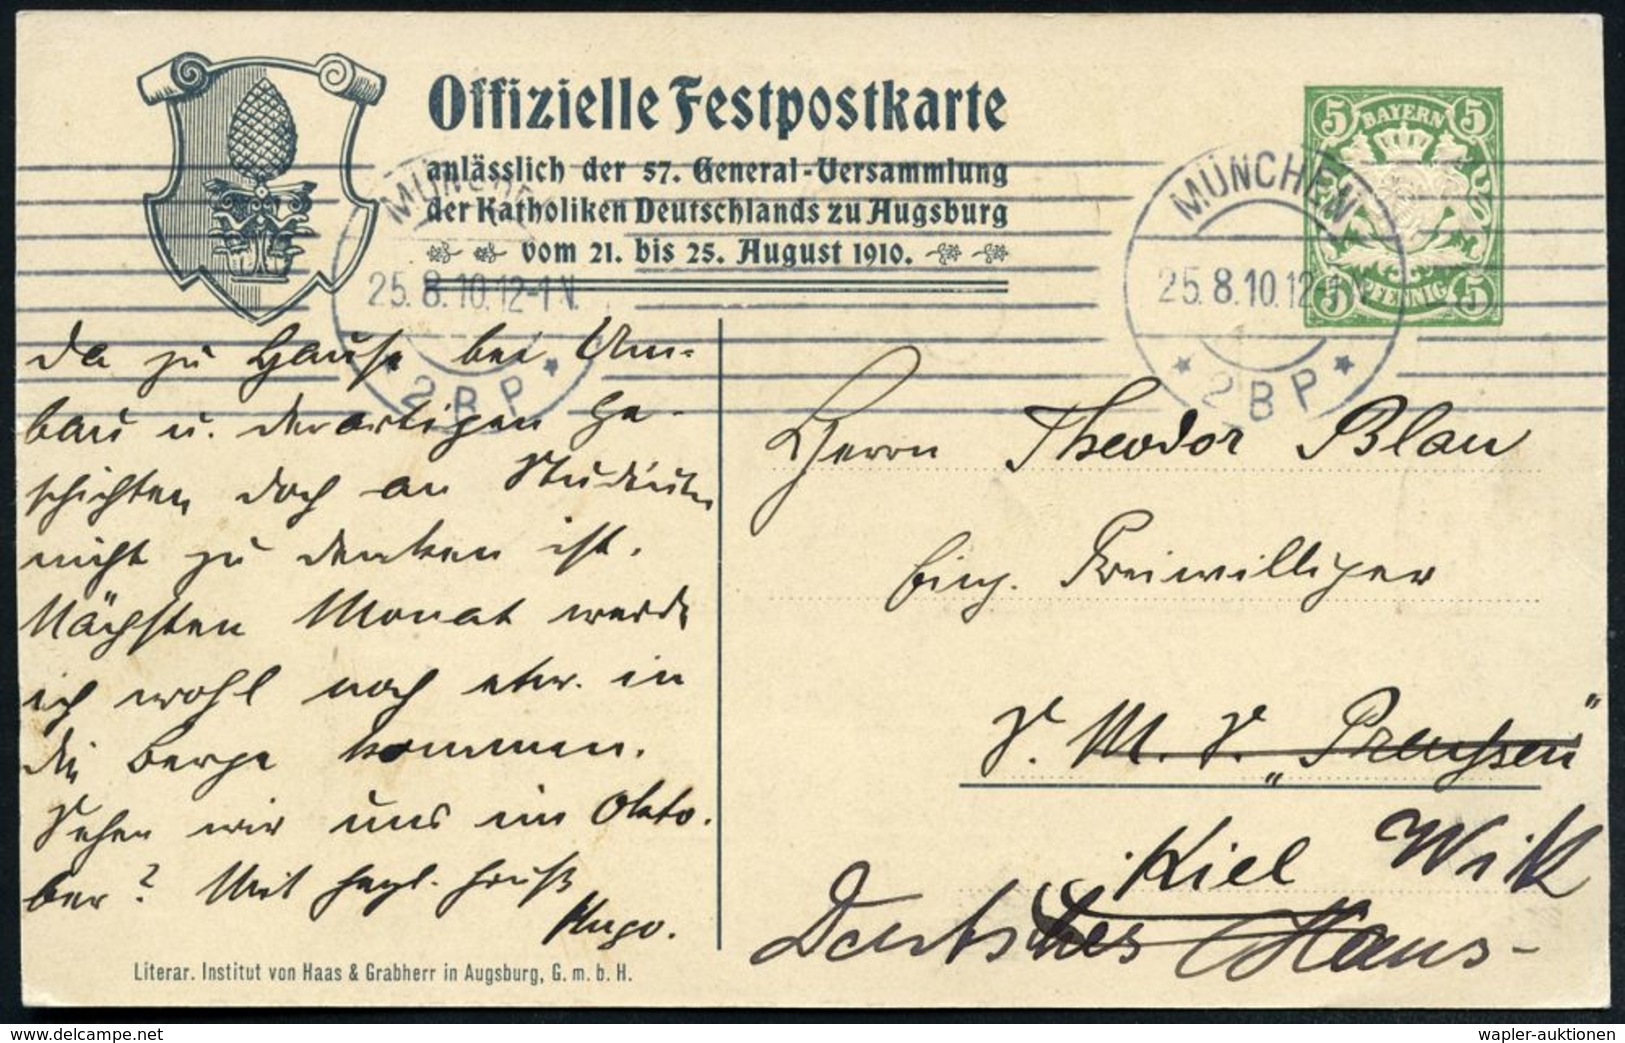 Offizielle Festpostkarte
anlässlich der 57. General-Versammlung
der Katholiken Deutschlands zu Augsburg
vom 21. bis 25. August 1910.
5 BAYERN 5
5 PFENNIG 5
MÜNCHEN
25.8.10.12-1 N.
* 2 B P *
MÜNCHEN
25.8.10.12-1 N
* 2 B P *
da zu Hause bei Um-
bau u. derartigen Ge-
schichten doch an Studium
nicht zu denken ist.
Nächsten Monat werde
ich wohl noch etw. in
die Berge kommen.
Sehen wir uns im Okto-
ber? Mit herzl. Gruß
Hugo.
Herrn Theodor Blau
Einj. Freiwilliger
S. M. S. „Preußen"
Kiel Wik
Deutsches Haus-
Literar. Institut von Haas & Grabherr in Augsburg, G. m. b. H.
copyright delcampe.net
wapler-auktionen